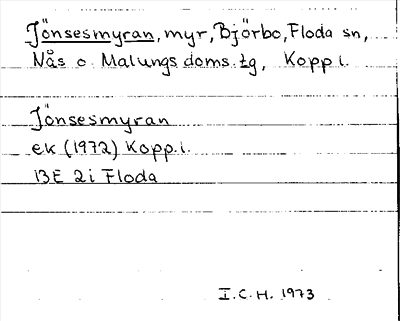 Jönsesmyran, myr, Björbo, Floda sn,
Nås o Malungs doms. tg, Kopp l.
Jönsesmyran
ek (1972) Kopp. l.
13E 2i Floda
I.C.H. 1973